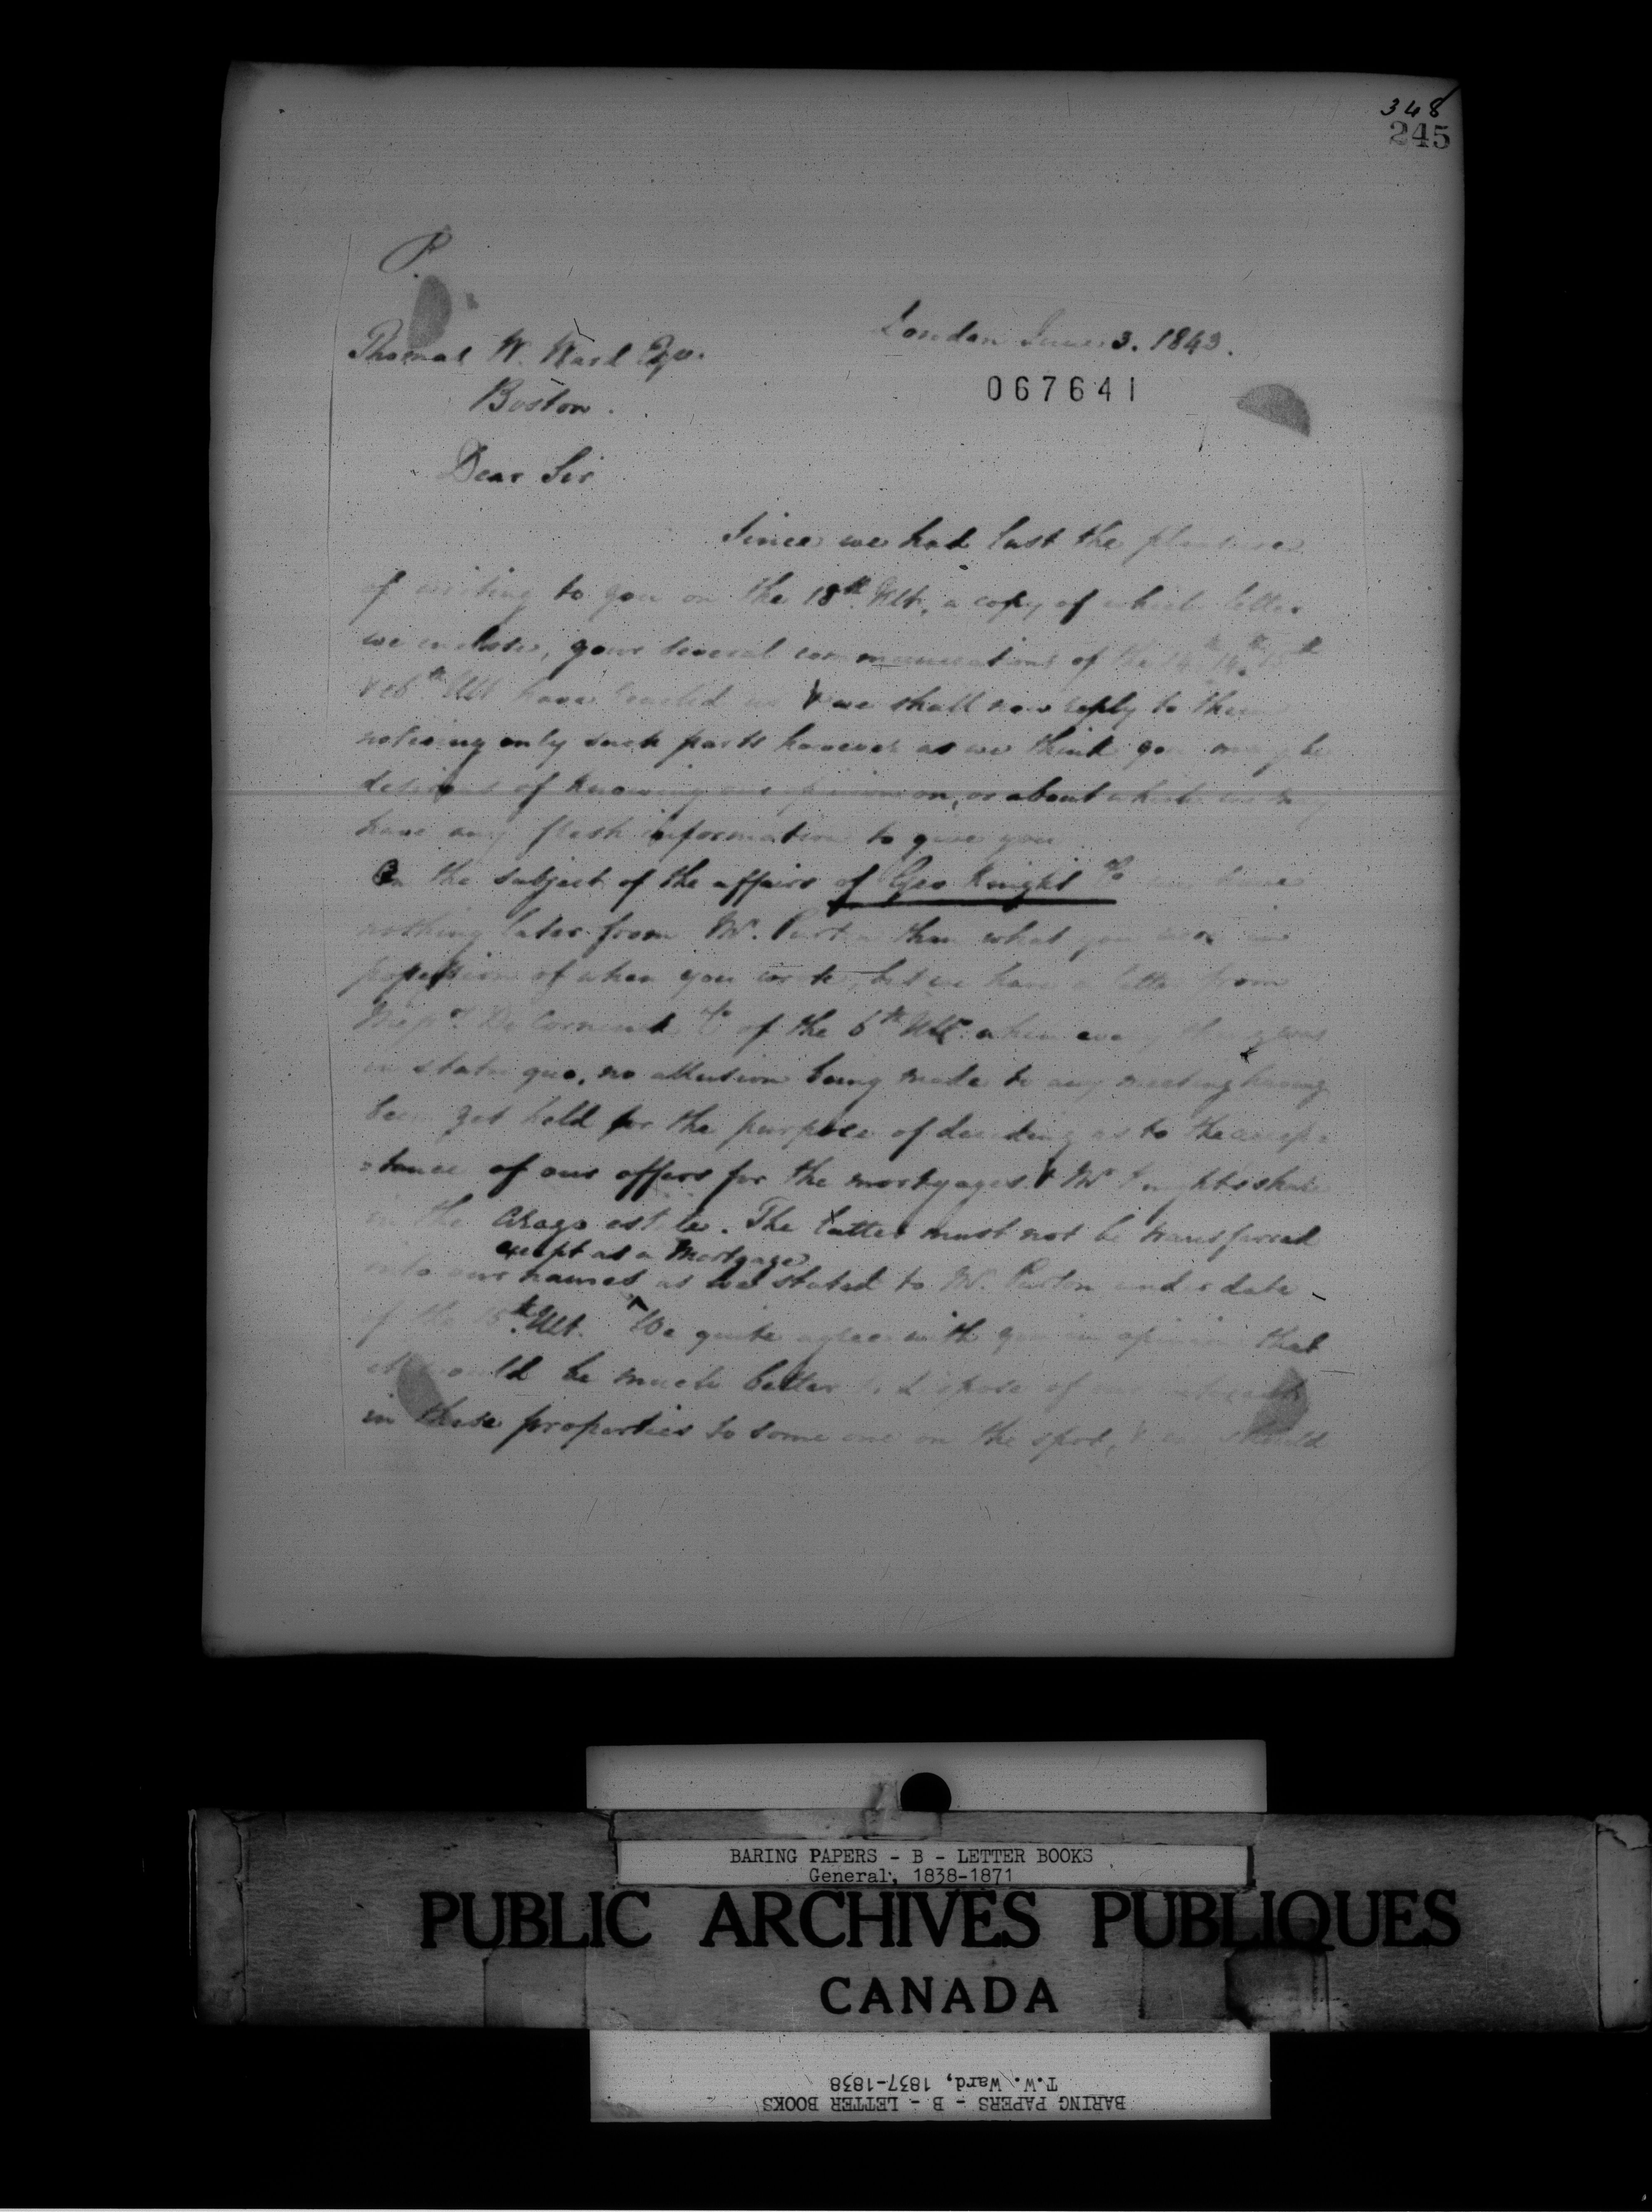 348
245
P.
London June 3. 1843.
Thomas W. Ward Esqre.
Boston.
067641
Dear Sir
Since we had last the pleasure
of writing to you on the 18th Ult, a copy of which letter
we enclose, your several communications of the 14th 15th
& 16th Ult have reached us & we shall now reply to them
noticing only such parts however as we think you may be
desirous of knowing our opinion on, or about which we may
have any fresh information to give you
On the subject of the affairs of Geo Knight & Co we have
nothing later from Mr. Purton than what you were in
possession of when you wrote, but we have a letter from
Messrs. De Coninck & Co of the 6th Ult. when every thing was
in statu quo, no allusion being made to any meeting having
been yet held for the purpose of deciding as to the accep=
=tance of our offers for the mortgages & Mr Knight's share
in the Arago estate. The latter must not be transferred
except as a Mortgage
into our names as we stated to Mr. Purton under date
of the 15th Ult. We quite agree with you in opinion that
it would be much better to dispose of our interests
in these properties to some one on the spot, & we should
BARING PAPERS - B - LETTER BOOKS
General, 1838-1871
PUBLIC ARCHIVES PUBLIQUES
CANADA
BARING PAPERS - B - LETTER BOOKS
T.W. Ward, 1837-1838